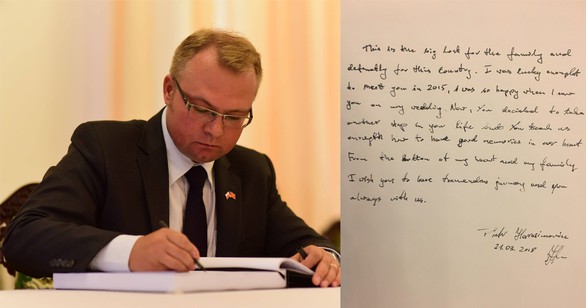 This is the big lost for the family and
definetly for this country. I was lucky enought
to meet you in 2015, I was so happy when I saw
you on my wedding. Now, You decided to take
another step in your life but You teach us
enought how to have good memories in our heart
From the bottom of my heart and my family
I wish you to have tremendous journey and you
always with us.
Piotr Harasimowicz
21.08.2018